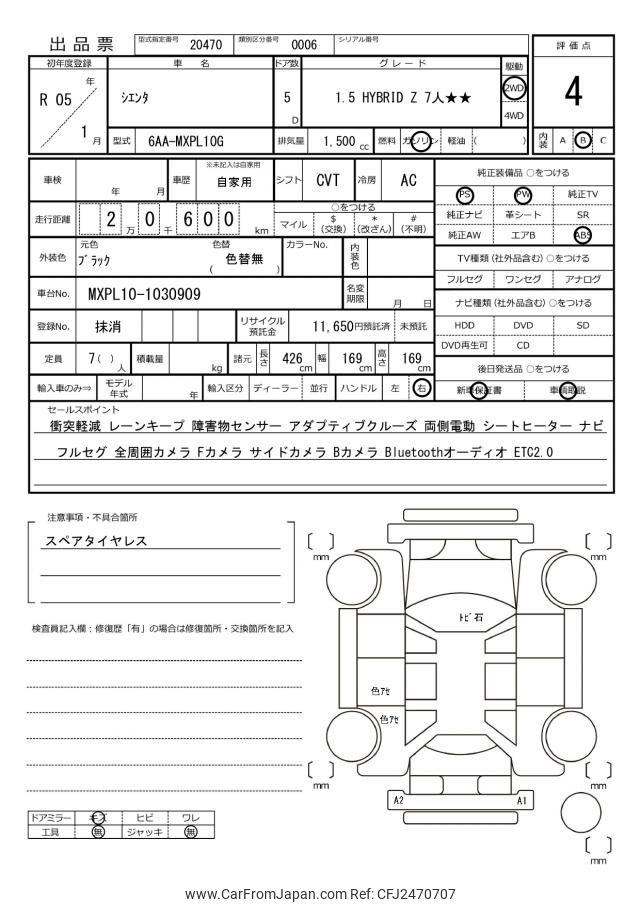 出品票 型式指定番号 20470 類別区分番号 0006 シリアル番号
評価点
4
内装 A B C
初年度登録 車名 ドア数 グレード 駆動
R 05 年 1 月 ｼｴﾝﾀ 5 D 1.5 HYBRID Z 7人★★ 2WD
4WD
型式 6AA-MXPL10G 排気量 1,500 cc 燃料 ガソリン 軽油 ( )
車検 年 月 車歴 ※未記入は自家用 自家用 シフト CVT 冷房 AC
走行距離 2 万 0 千 6 0 0 km
○をつける
マイル $(交換) *(改ざん) #(不明)
外装色 元色 ﾌﾞﾗｯｸ 色替 ( 色替無 ) カラーNo. 内装色
車台No. MXPL10-1030909 名変期限 月 日
登録No. 抹消 リサイクル預託金 11,650円預託済 未預託
定員 7( )人 積載量 kg 諸元 長さ 426 cm 幅 169 cm 高さ 169 cm
輸入車のみ⇒ モデル年式 年 輸入区分 ディーラー 並行 ハンドル 左 右
純正装備品 ○をつける
PS PW 純正TV
純正ナビ 革シート SR
純正AW エアB ABS
TV種類(社外品含む) ○をつける
フルセグ ワンセグ アナログ
ナビ種類(社外品含む) ○をつける
HDD DVD SD
DVD再生可 CD
後日発送品 ○をつける
新車保証書 車輌取説
セールスポイント
衝突軽減 レーンキープ 障害物センサー アダプティブクルーズ 両側電動 シートヒーター ナビ
フルセグ 全周囲カメラ Fカメラ サイドカメラ Bカメラ Bluetoothオーディオ ETC2.0
注意事項・不具合箇所
スペアタイヤレス
検査員記入欄：修復歴「有」の場合は修復箇所・交換箇所を記入
mm
mm
ﾄﾋﾞ石
色ｱｾ
色ｱｾ
mm
mm
A2 A1
mm
ドアミラー キズ ヒビ ワレ
工具 無 ジャッキ 無
www.CarFromJapan.com Ref: CFJ2470707